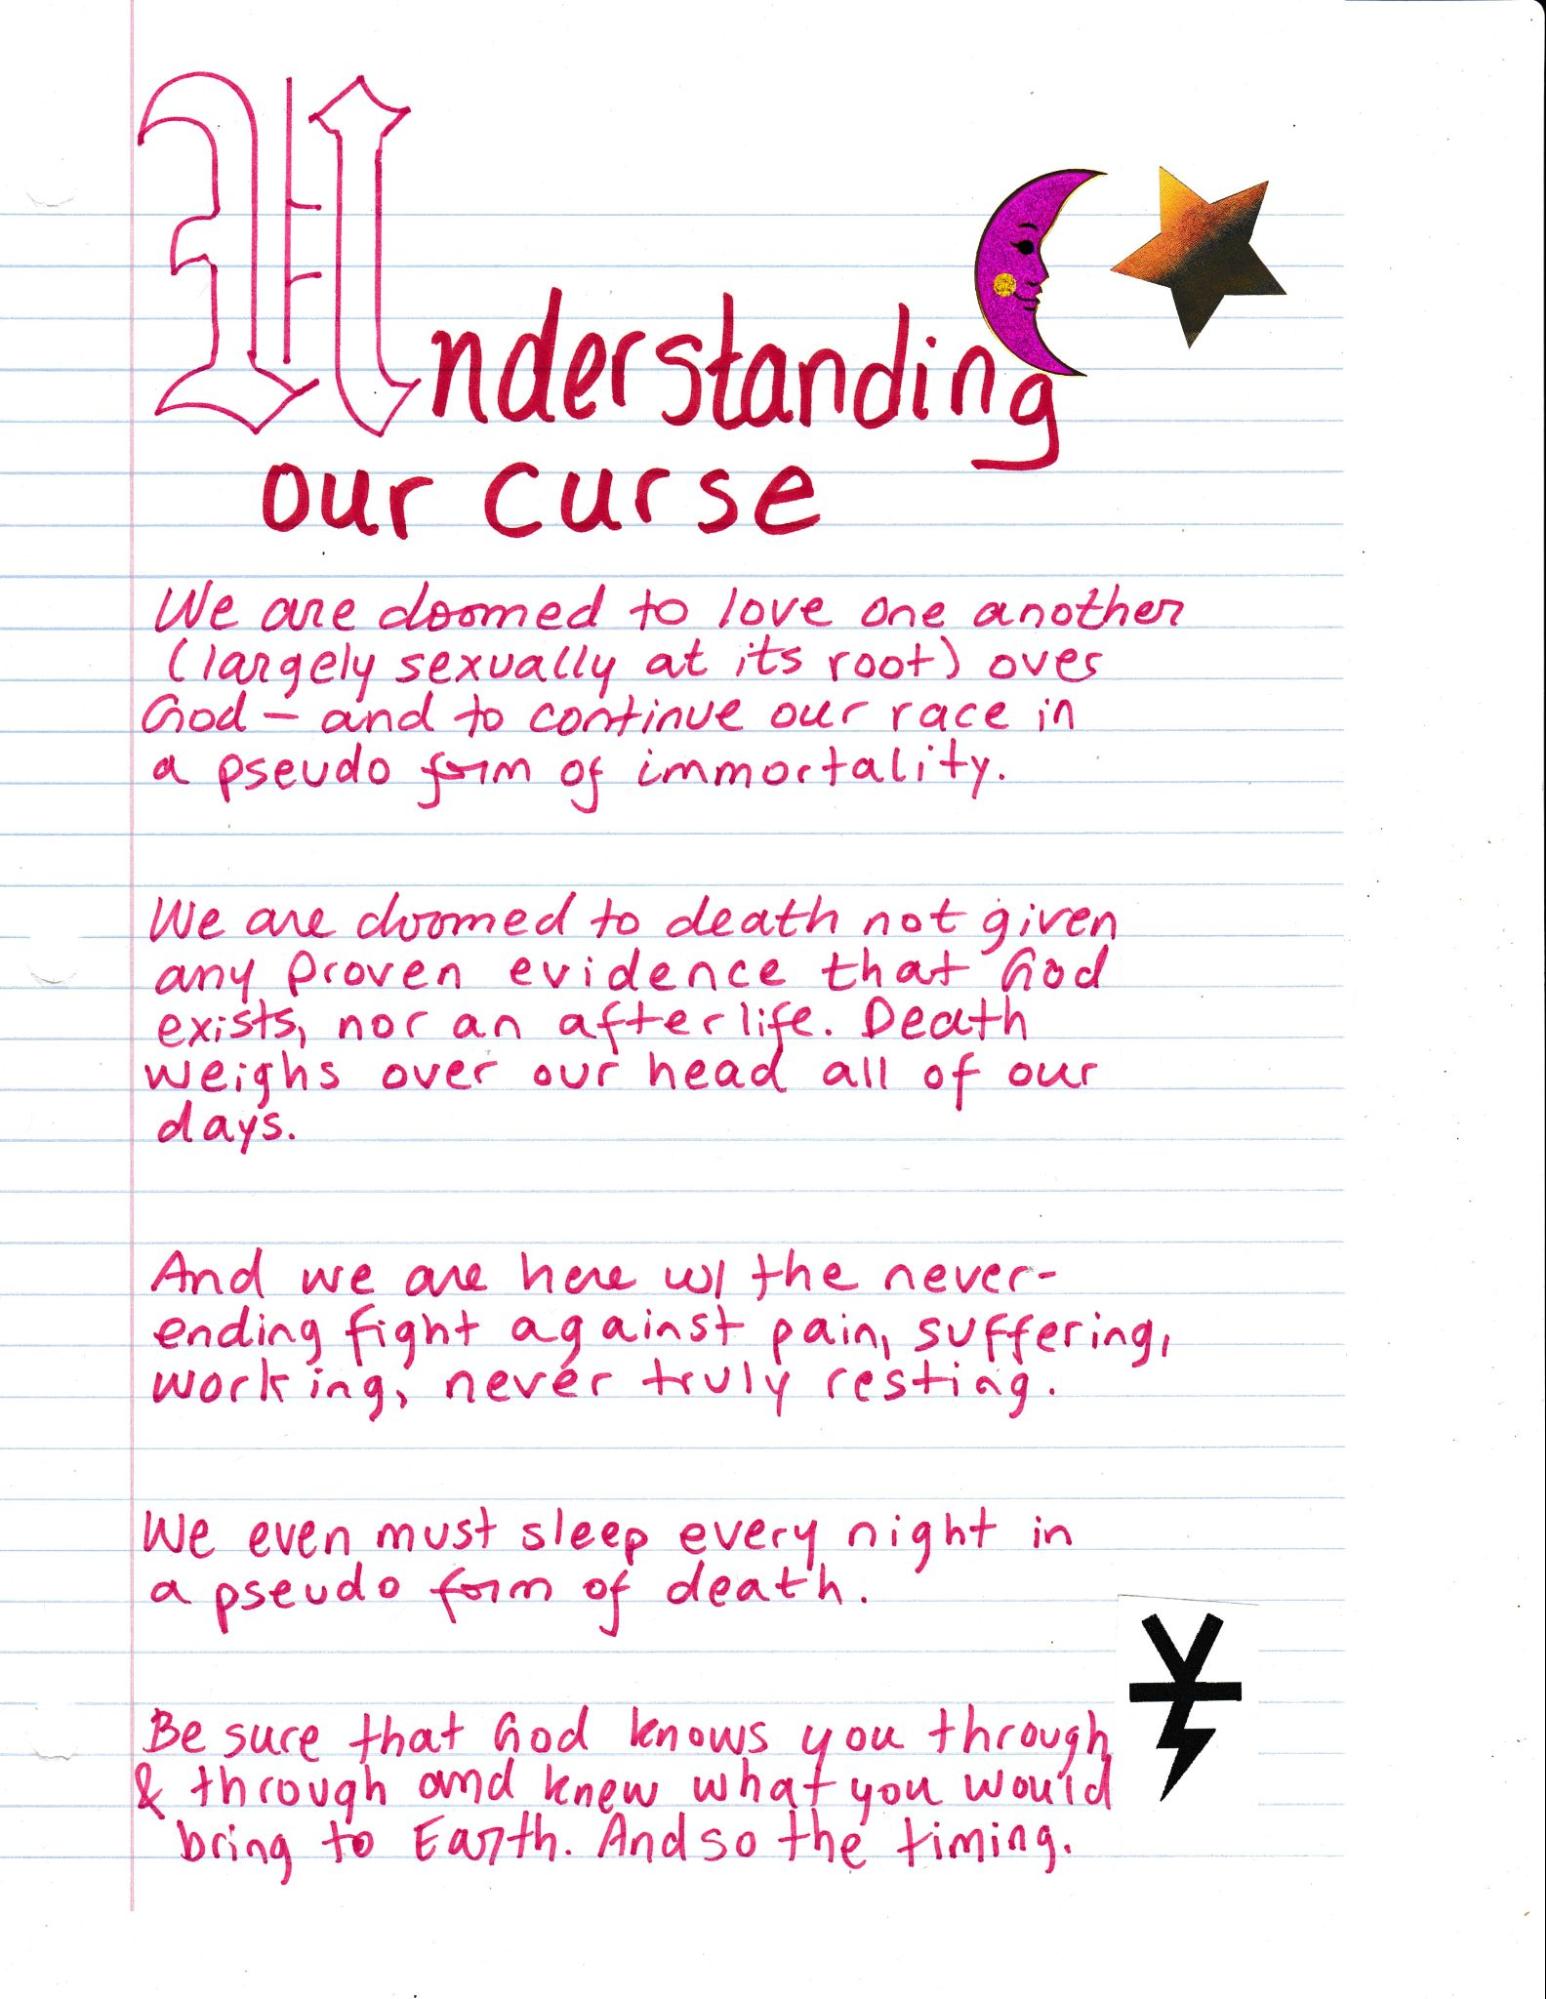 Understanding
our curse
We are doomed to love one another
(largely sexually at its root) over
God – and to continue our race in
a pseudo form of immortality.
We are doomed to death not given
any proven evidence that God
exists, nor an afterlife. Death
weighs over our head all of our
days.
And we are here w/ the never-
ending fight against pain, suffering,
working, never truly resting.
We even must sleep every night in
a pseudo form of death.
Be sure that God knows you through
& through and knew what you would
bring to Earth. And so the timing.